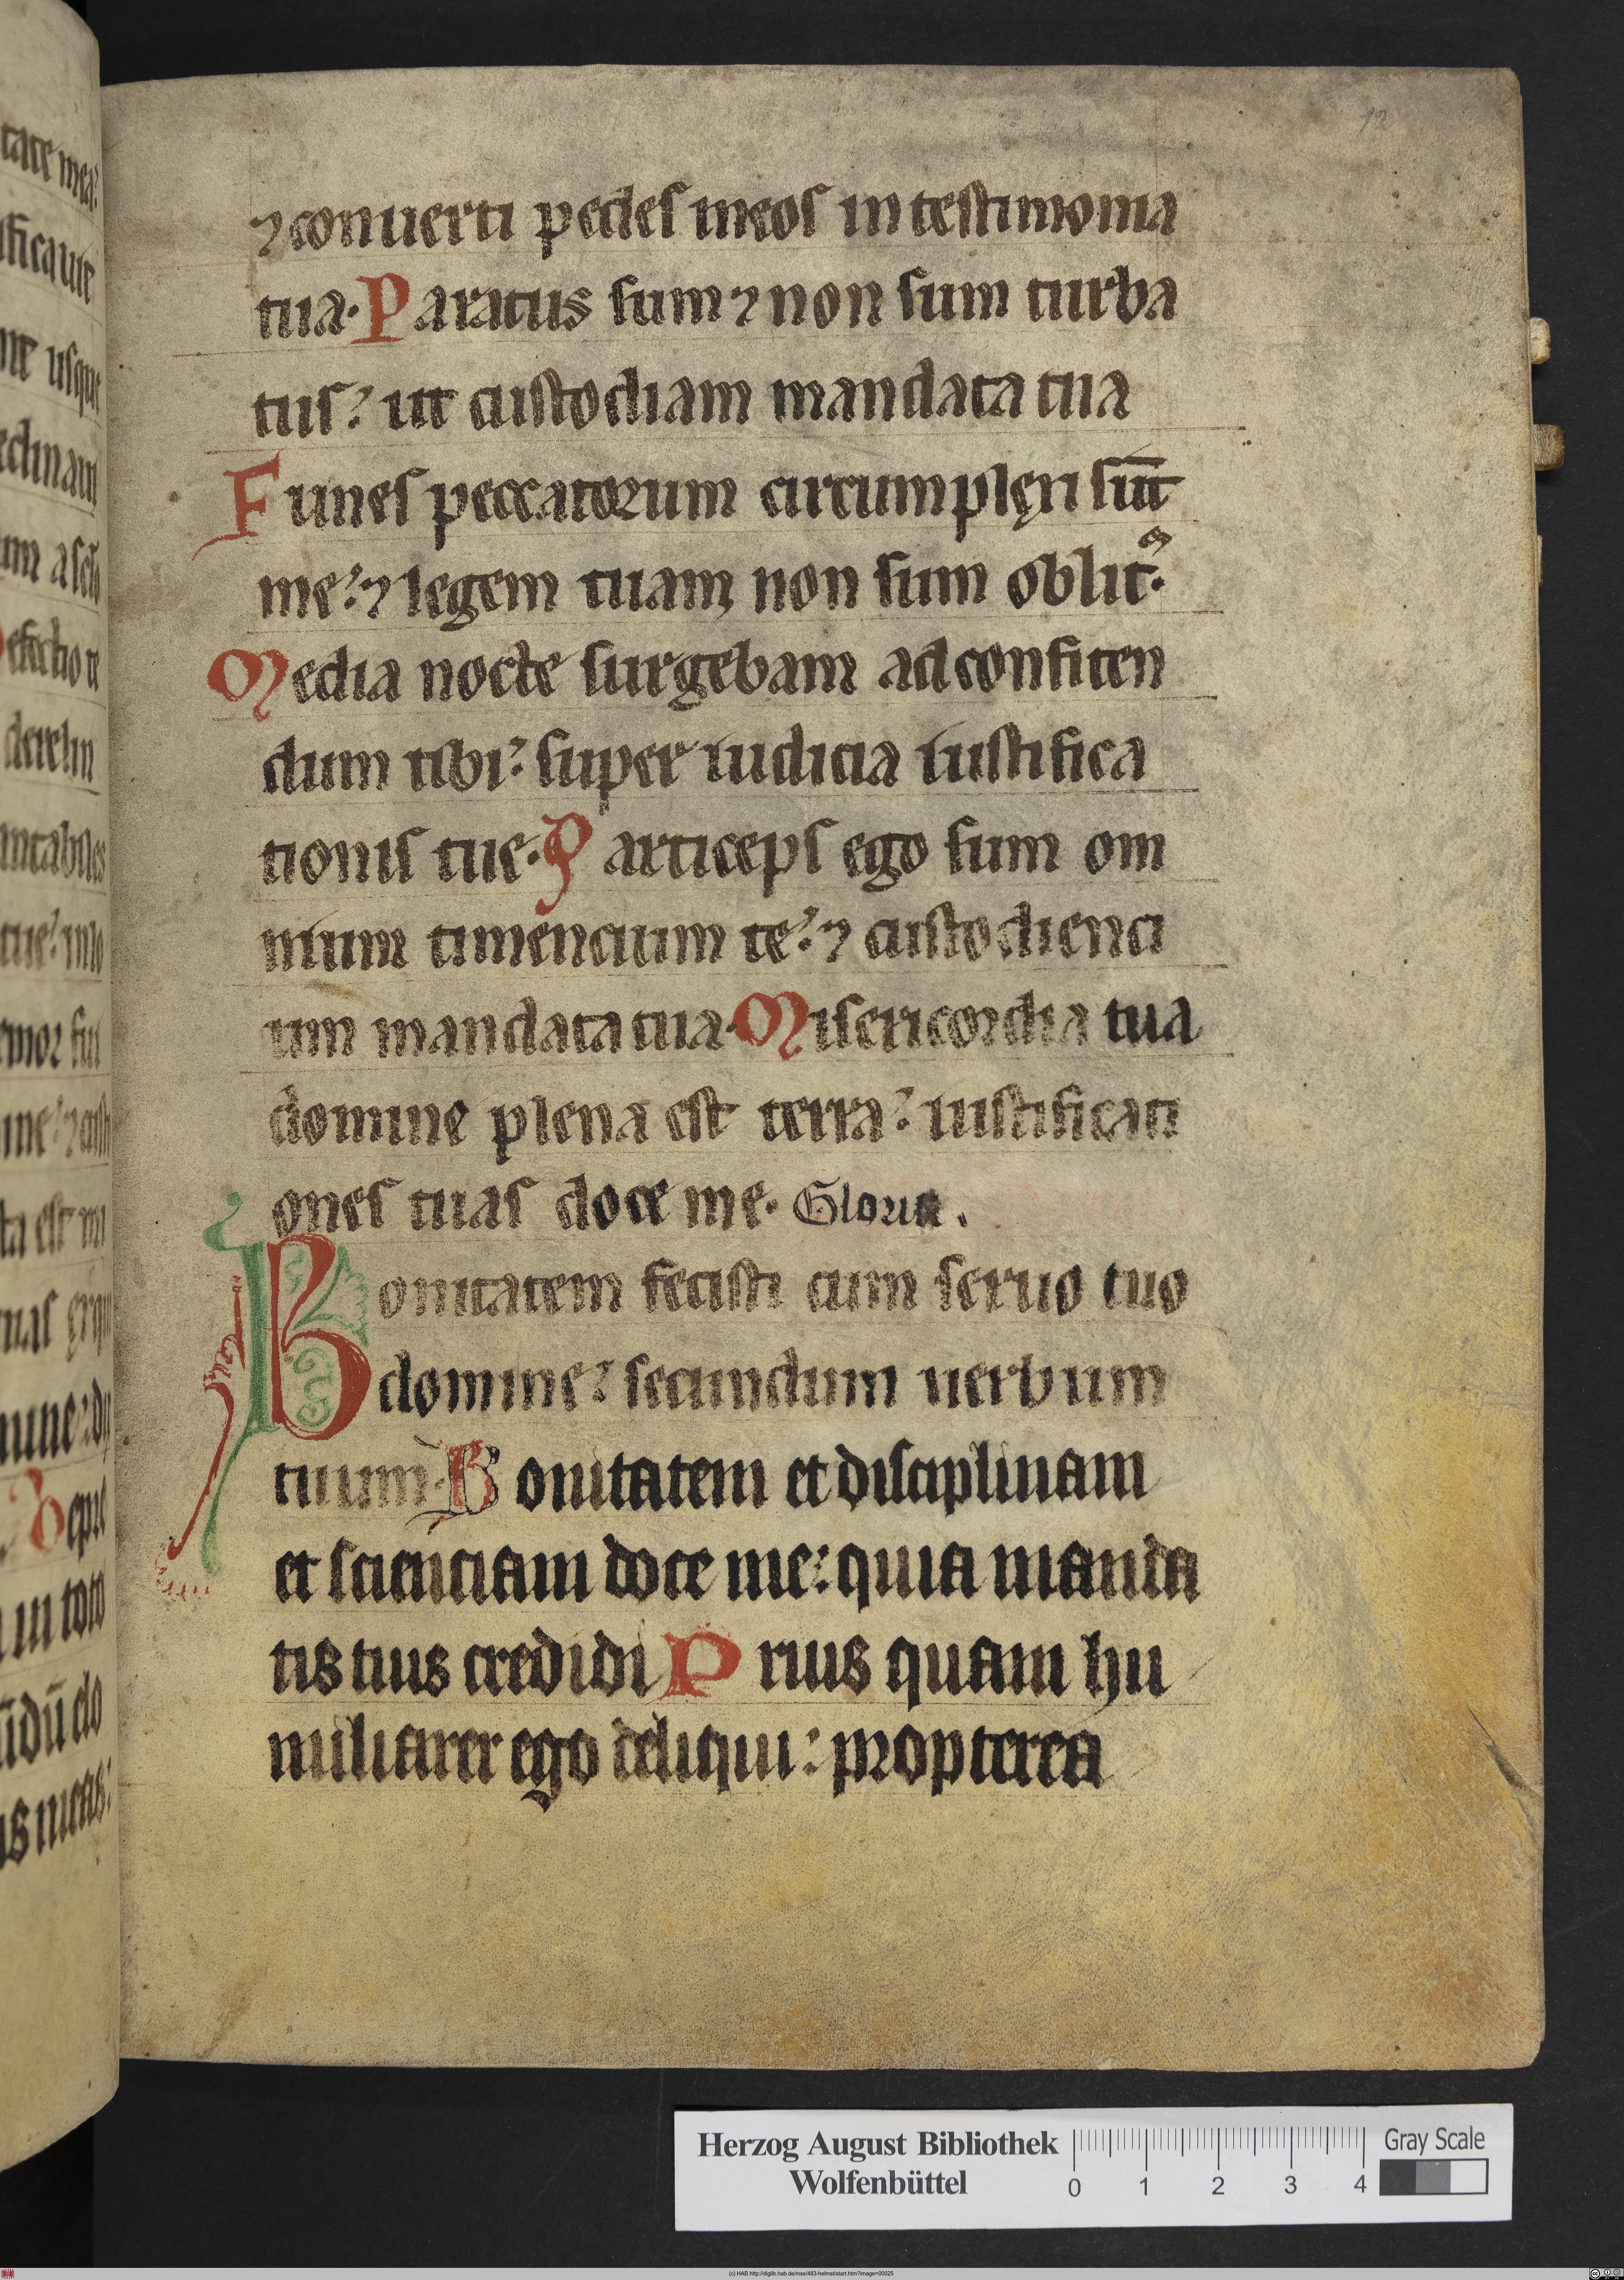 12
⁊ conuerti pedes meos in testimonia
tua· Paratus sum ⁊ non sum turba
tus? ut custodiam mandata tua
Funes peccatorum circumplęxi sūt
me? ⁊ legem tuam non sum oblit᷒·
Media nocte surgebam ad confiten
dum tibi? super iudicia iustifica
tionis tue· Particeps ego sum om
nium timencium te? ⁊ custodienci
um mandata tua· Misericordia tua
domine plena est terra? iustificati
ones tuas doce me· Gloria.
Bonitatem fecisti cum seruo tuo
domine? secundum uerbum
tuum· Bonitatem et disciplinam
et scienciam doce me: quia manda
tis tuis credidi Prius quam hu
miliarer ego deliqui: propterea
Herzog August Bibliothek
Wolfenbüttel
0 1 2 3 4
Gray Scale
(c) HAB http://diglib.hab.de/mss/483-helmst/start.htm?image=00025